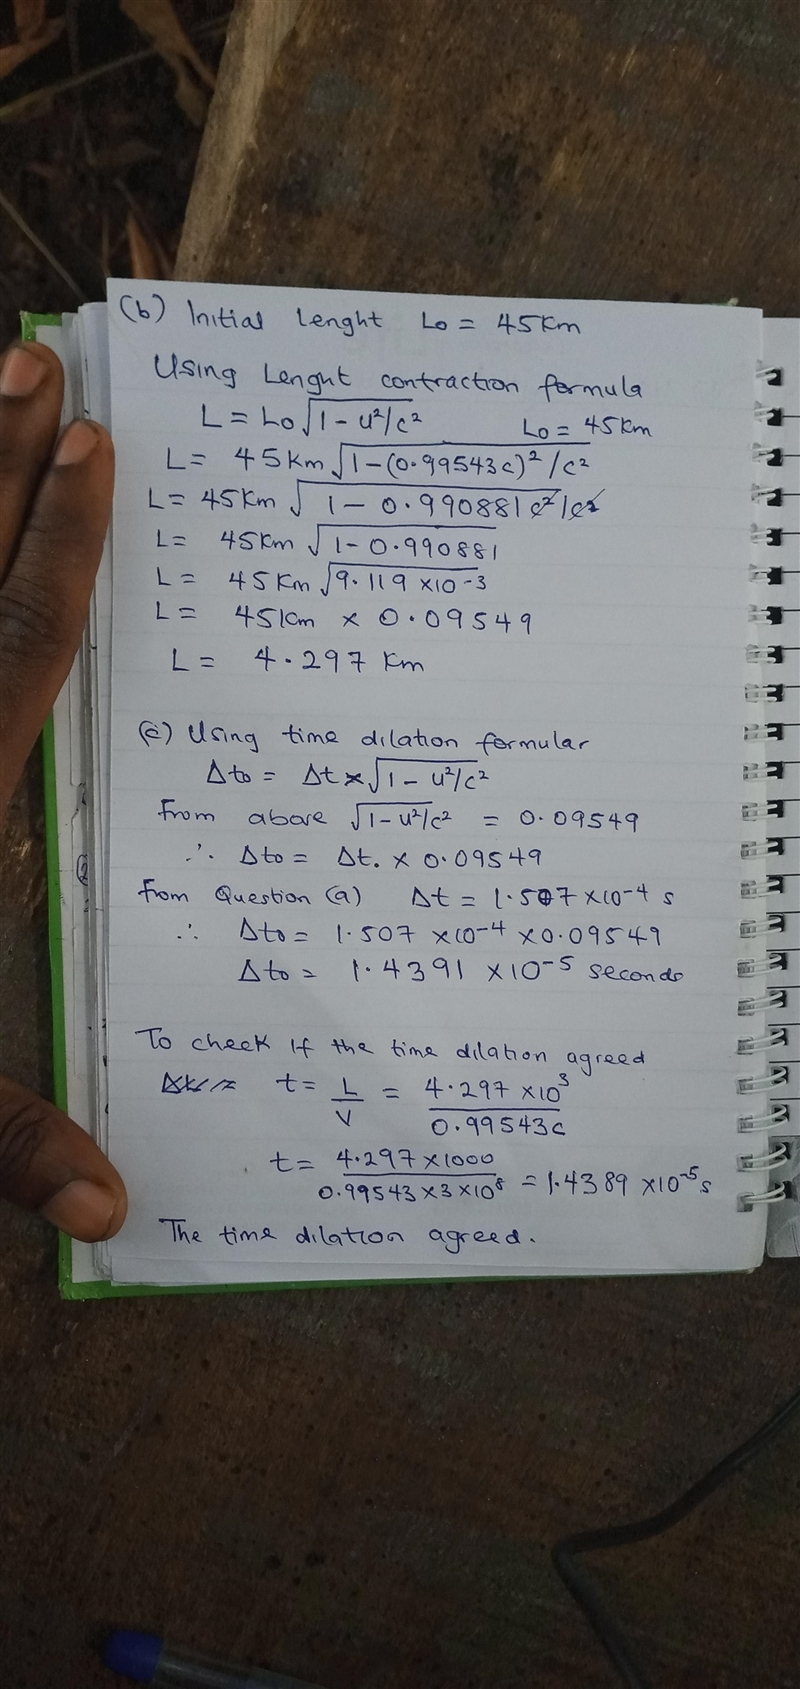 (b) Initial Lenght Lo = 45Km
Using Lenght contraction formula
L = Lo√1 - u²/c² Lo = 45km
L = 45km√1-(0.99543c)²/c²
L = 45km √1 - 0.990881c²/c²
L = 45km √1-0.990881
L = 45km √9.119 x10-3
L = 45km x 0.09549
L = 4.297 Km
(c) Using time dilation formular
Δto = Δt x √1 - u²/c²
From above √1-u²/c² = 0.09549
∴ Δto = Δt. x 0.09549
From Question (a) Δt = 1.507 x10-4 s
∴ Δto = 1.507 x10-4 x0.09549
Δto = 1.4391 x10-5 seconds
To check if the time dilation agreed
t = L/V = 4.297 x10³/0.99543c
t = 4.297x1000/0.99543x3x10⁸ = 1.4389 x10-5s
The time dilation agreed.